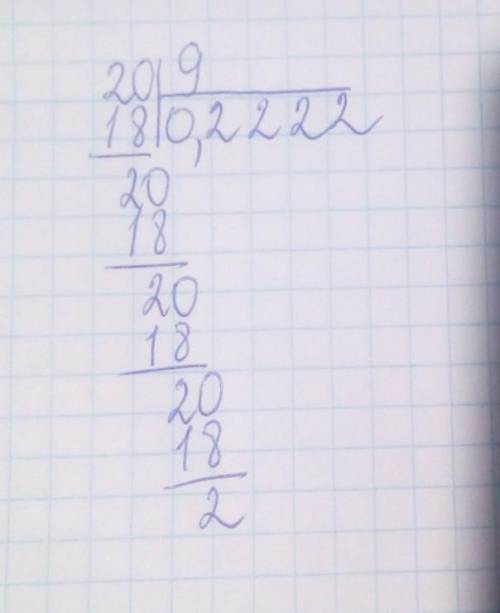 20 9
18 0,2222
20
18
20
18
20
18
2